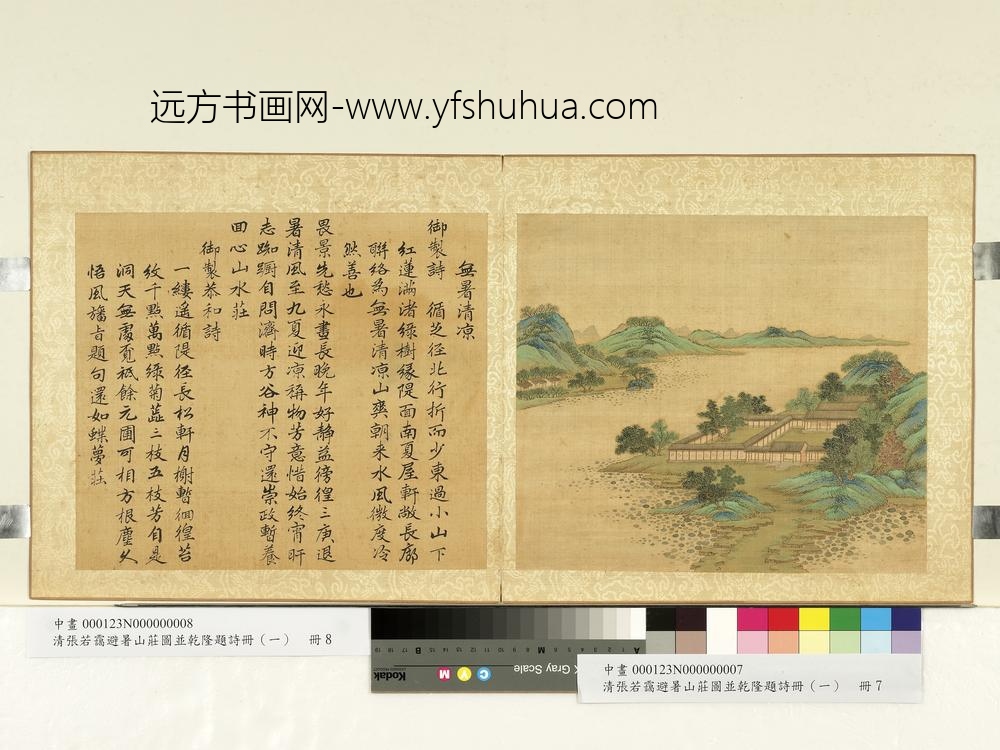 远方书画网-www.yfshuhua.com
無暑清凉
御製詩　循芝径北行折而少東過小山下
紅蓮滿渚綠樹緣隄面南夏屋軒敞長廊
聯絡為無暑清凉山爽朝来水風微度冷
然善也
畏景先愁永晝長晚年好静益徬徨三庚退
暑清風至九夏迎凉稱物芳意惜始終宵旰
志踟躕自問濟時方谷神不守還崇政暫養
回心山水莊
御製恭和詩
一縷遙循隄径長松軒月榭暫徊徨苔
紋千點萬點綠菊蕋三枝五枝芳自是
洞天無處覓祗餘元圃可相方根塵久
悟風旛旨題句還如蝶夢莊
中畫 000123N000000008
清張若靄避暑山莊圖並乾隆題詩冊（一）　冊 8
Kodak
C Y M
Gray Scale
A 1 2 3 4 5 6 M 8 9 10 11 12 13 14 15 B 17 18 19
中畫 000123N000000007
清張若靄避暑山莊圖並乾隆題詩冊（一）　冊 7